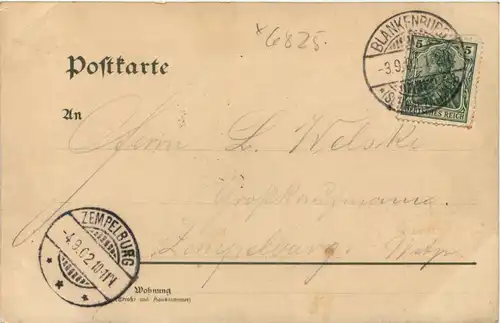 *6825.
BLANKENBURG
-3.9.
5 5
DEUTSCHES REICH
Postkarte
An
Herrn L. Welski
Großkaufmann.
Zempelburg. Wstpr.
ZEMPELBURG
-4.9.02.10-11V
* * *
Wohnung
(Straße und Hausnummer)